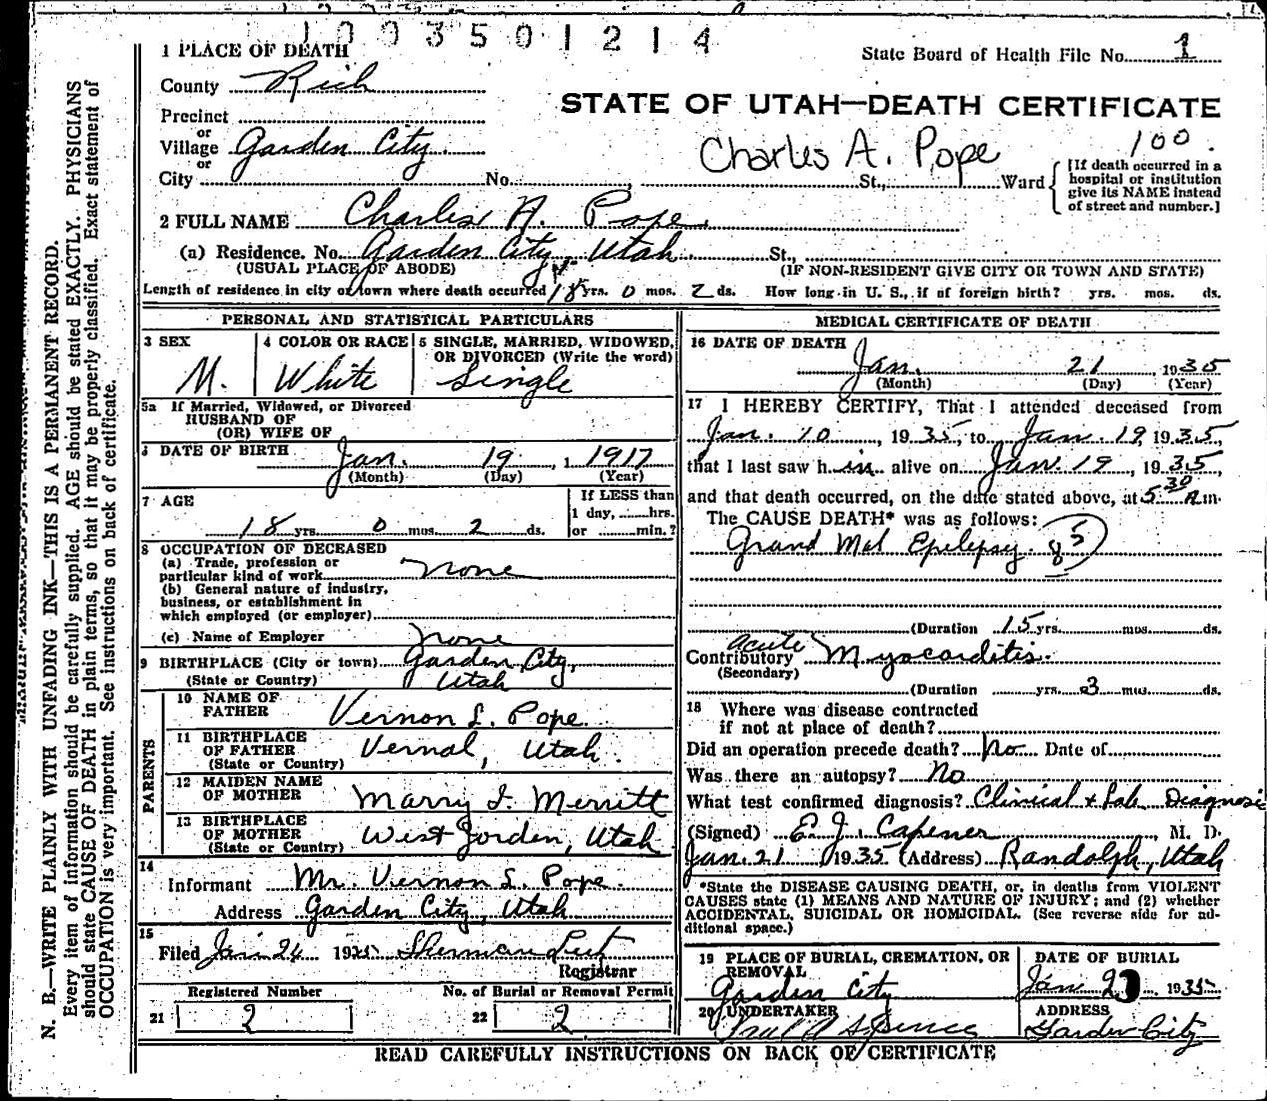 1003501214
1 PLACE OF DEATH
State Board of Health File No. 1
County Rich
STATE OF UTAH—DEATH CERTIFICATE
Precinct
or
Village Garden City.
Charles A. Pope
100.
or
City No. St., Ward
[If death occurred in a
hospital or institution
give its NAME instead
of street and number.]
2 FULL NAME Charles A. Pope.
(a) Residence. No. Garden City, Utah. St.,
(USUAL PLACE OF ABODE) (IF NON-RESIDENT GIVE CITY OR TOWN AND STATE)
Length of residence in city or town where death occurred 18 yrs. 0 mos. 2 ds. How long in U. S., if of foreign birth? yrs. mos. ds.
PERSONAL AND STATISTICAL PARTICULARS
3 SEX
M.
4 COLOR OR RACE
White
5 SINGLE, MARRIED, WIDOWED,
OR DIVORCED (Write the word)
Single
5a If Married, Widowed, or Divorced
HUSBAND OF
(OR) WIFE OF
6 DATE OF BIRTH Jan. 19, 1917
(Month) (Day) (Year)
7 AGE
18 yrs. 0 mos. 2 ds.
If LESS than
1 day, hrs.
or min.?
8 OCCUPATION OF DECEASED
(a) Trade, profession or
particular kind of work none
(b) General nature of industry,
business, or establishment in
which employed (or employer)
(c) Name of Employer none
9 BIRTHPLACE (City or town) Garden City,
(State or Country) Utah
PARENTS
10 NAME OF
FATHER Vernon L. Pope.
11 BIRTHPLACE
OF FATHER Vernal, Utah.
(State or Country)
12 MAIDEN NAME
OF MOTHER Marry I. Merritt
13 BIRTHPLACE
OF MOTHER West Jorden, Utah
(State or Country)
14
Informant Mr. Vernon L. Pope.
Address Garden City, Utah
15
Filed Jan 24 1935 Sherman
Registrar
Registered Number
21 2
No. of Burial or Removal Permit
22 2
MEDICAL CERTIFICATE OF DEATH
16 DATE OF DEATH
Jan. 21, 1935
(Month) (Day) (Year)
17 I HEREBY CERTIFY, That I attended deceased from
Jan. 10, 1935, to Jan. 19, 1935,
that I last saw him alive on Jan. 19, 1935,
and that death occurred, on the date stated above, at 5 30 A m.
The CAUSE DEATH* was as follows:
Grand Mal Epilepsy. 85
(Duration 15 yrs. mos. ds.
Acute
Contributory Myocarditis.
(Secondary)
(Duration yrs. 3 mos. ds.
18 Where was disease contracted
if not at place of death?
Did an operation precede death? No Date of
Was there an autopsy? No
What test confirmed diagnosis? Clinical + Lab Diagnosis
(Signed) E. J. Capener, M. D.
Jan. 21 1935 (Address) Randolph, Utah
*State the DISEASE CAUSING DEATH, or, in deaths from VIOLENT
CAUSES state (1) MEANS AND NATURE OF INJURY; and (2) whether
ACCIDENTAL, SUICIDAL OR HOMICIDAL. (See reverse side for ad-
ditional space.)
19 PLACE OF BURIAL, CREMATION, OR
REMOVAL
Garden City
DATE OF BURIAL
Jan 23 1935
20 UNDERTAKER
Paul A Spence
ADDRESS
Garden City
READ CAREFULLY INSTRUCTIONS ON BACK OF CERTIFICATE
N. B.—WRITE PLAINLY WITH UNFADING INK—THIS IS A PERMANENT RECORD.
Every item of information should be carefully supplied. AGE should be stated EXACTLY. PHYSICIANS
should state CAUSE OF DEATH in plain terms, so that it may be properly classified. Exact statement of
OCCUPATION is very important. See instructions on back of certificate.